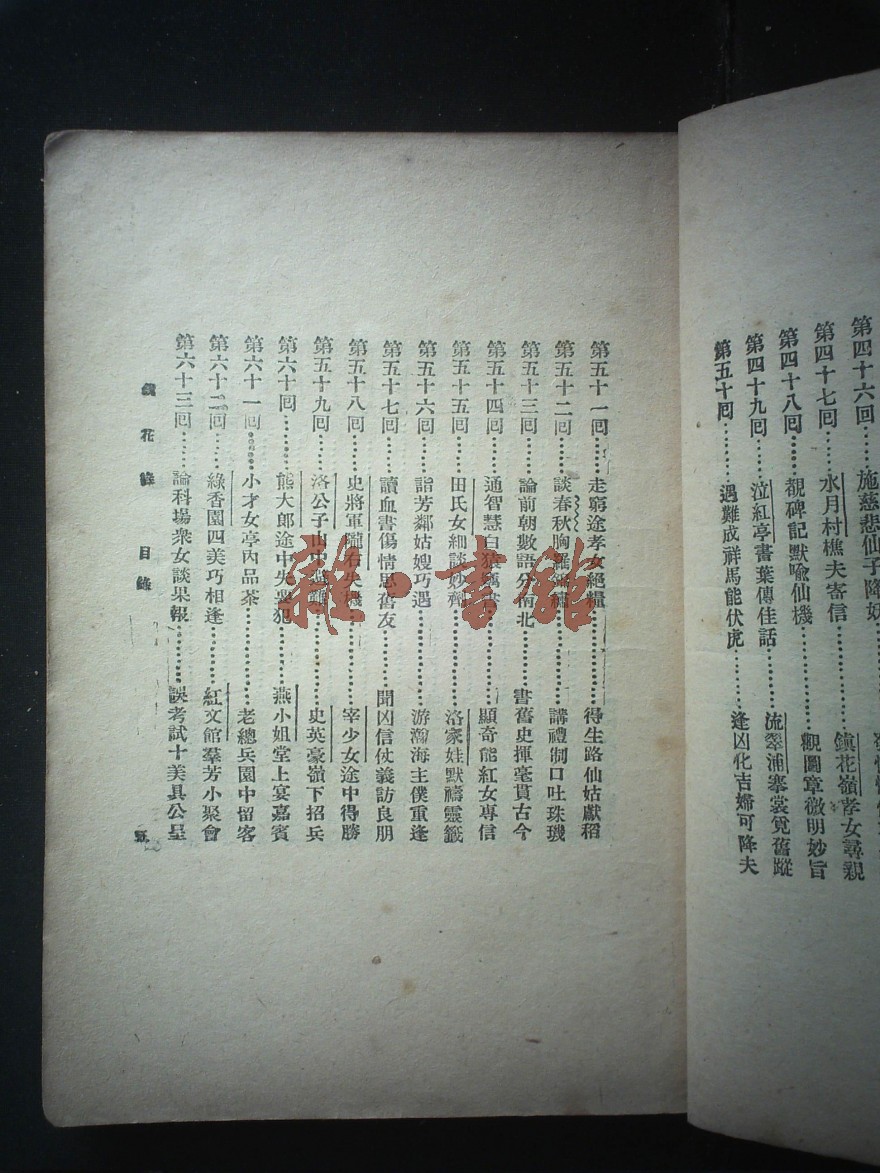 第四十六回……施慈悲仙子降妖
第四十七回……水月村樵夫寄信………………鎮花嶺孝女尋親
第四十八回……覩碑記默喻仙機………………觀圖章微明妙旨
第四十九回……泣紅亭書葉傳佳話……………流翠浦搴裳覓舊蹤
第五十回………遇難成祥馬能伏虎……………逢凶化吉婦可降夫
第五十一回……走窮途孝女絕糧………………得生路仙姑獻稻
第五十二回……談春秋胸羅錦繡………………講禮制口吐珠璣
第五十三回……論前朝數語分南北……………書舊史揮毫貫古今
第五十四回……通智慧白猿竊書………………顯奇能紅女傳信
第五十五回……田氏女細談妙劑………………洛家娃默禱靈籤
第五十六回……詣芳鄰姑嫂巧遇………………游瀚海主僕重逢
第五十七回……讀血書傷情思舊友……………聞凶信仗義訪良朋
第五十八回……史將軍隴右失機………………宰少女途中得勝
第五十九回……洛公子山中避難………………史英豪嶺下招兵
第六十回………熊大郎途中失要犯……………燕小姐堂上宴嘉賓
第六十一回……小才女亭內品茶………………老總兵園中留客
第六十二回……綠香園四美巧相逢……………紅文館羣芳小聚會
第六十三回……論科場衆女談果報……………誤考試十美具公呈
鏡花緣 目錄
五
雜·書館